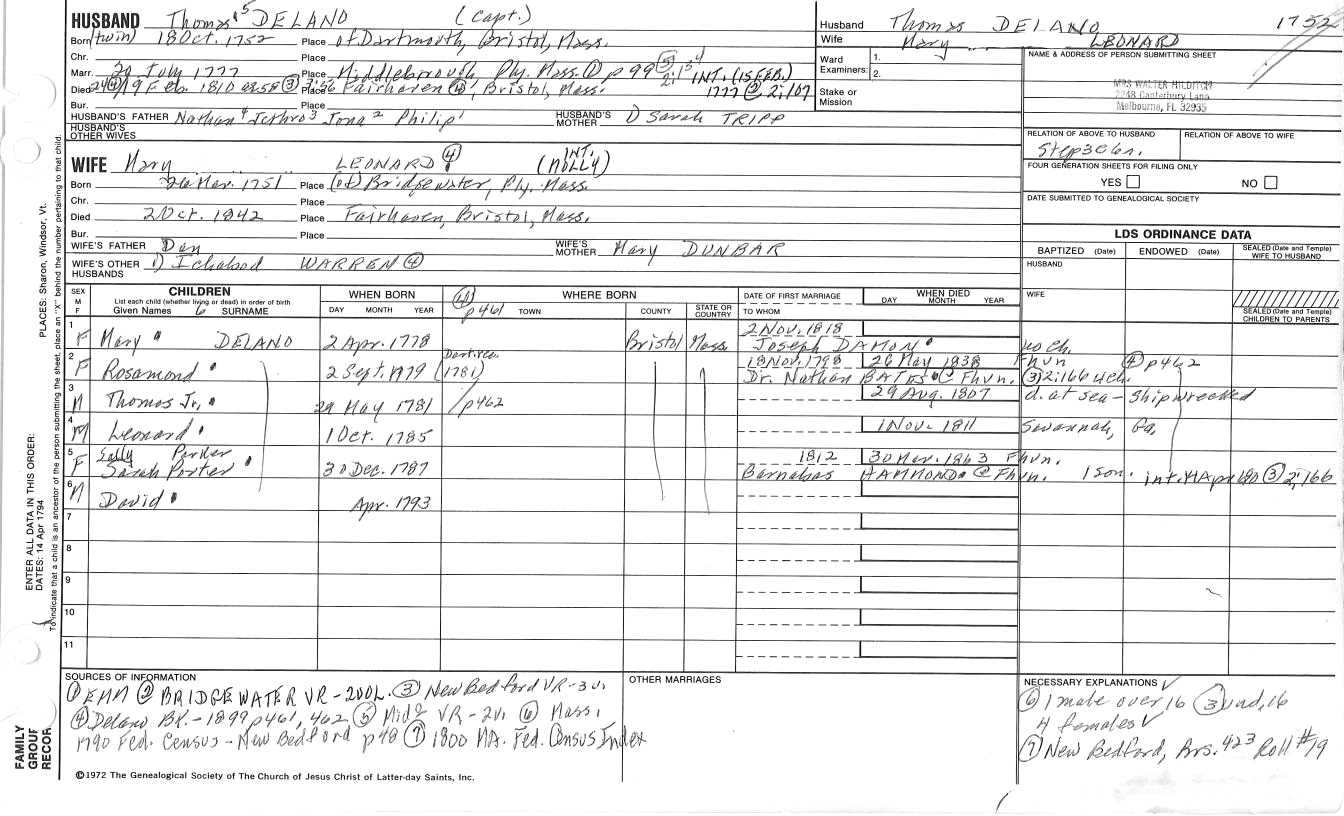 HUSBAND Thomas 5 DELANO (Capt.)
Born (twin) 18 Oct. 1752 Place of Dartmouth, Bristol, Mass.
Chr. Place
Marr. 29 July 1777 Place Middleborough, Ply. Mass. ① p 99 ⑤ 2:154 INT. (15 FEB. 1777 ② 2:107
Died 24 ④/19 Feb. 1810 ③ 2:56 Place Fairhaven ④, Bristol, Mass.
Bur. Place
HUSBAND'S FATHER Nathan 4 Jethro 3 Jona 2 Philip 1 HUSBAND'S MOTHER 1) Sarah TRIPP
HUSBAND'S OTHER WIVES
WIFE Mary LEONARD ④ (INT. MOLLY)
Born 26 Mar. 1751 Place (of) Bridgewater, Ply. Mass.
Chr. Place
Died 2 Oct. 1842 Place Fairhaven, Bristol, Mass.
Bur. Place
WIFE'S FATHER Dan WIFE'S MOTHER Mary DUNBAR
WIFE'S OTHER HUSBANDS 1) Ichabod WARREN ④
Husband Thomas DELANO 1752
Wife Mary LEONARD
Ward Examiners: 1.
2.
Stake or Mission
NAME & ADDRESS OF PERSON SUBMITTING SHEET
MRS WALTER HILDITCH
2248 Canterbury Lane
Melbourne, FL 32935
RELATION OF ABOVE TO HUSBAND RELATION OF ABOVE TO WIFE
FOUR GENERATION SHEETS FOR FILING ONLY
YES NO
DATE SUBMITTED TO GENEALOGICAL SOCIETY
LDS ORDINANCE DATA
BAPTIZED (Date) ENDOWED (Date) SEALED (Date and Temple) WIFE TO HUSBAND
HUSBAND
WIFE
SEALED (Date and Temple) CHILDREN TO PARENTS
SEX M F CHILDREN WHEN BORN WHERE BORN DATE OF FIRST MARRIAGE WHEN DIED
List each child (whether living or dead) in order of birth
Given Names 6 SURNAME DAY MONTH YEAR ④ p461 TOWN COUNTY STATE OR COUNTRY TO WHOM DAY MONTH YEAR
1 F Mary DELANO 2 Apr. 1778 Bristol Mass. 2 Nov. 1818 Joseph DAMON no ch.
2 F Rosamond 2 Sept. 1779 Dart. rec. (1781) 18 Nov. 1798 26 May 1838 Fhvn ④ p462
Dr. Nathan BATES @ Fhvn. ③ 2:166 4 ch.
3 M Thomas Jr. 29 May 1781 /p462 29 Aug. 1807 d. at sea - shipwrecked
4 M Leonard 1 Oct. 1785 1 Nov. 1811 Savannah, Ga.
5 F Sally Porter Sarah Porter 30 Dec. 1787 1812 30 Mar. 1863 Fhvn.
Barnabas HAMMOND @ Fhvn. 1 son. ③ 2:166
6 M David Apr. 1793
7
8
9
10
11
SOURCES OF INFORMATION
① EMM ② BRIDGEWATER VR - 2VOL. ③ New Bedford VR - 3 v.
④ Delano Bk. - 1899 p461, 462 ⑤ Mid VR - 2v. ⑥ Mass.
1790 Fed. Census - New Bedford p48 ⑦ 1800 MA. Fed. Census Index
OTHER MARRIAGES
NECESSARY EXPLANATIONS
⑥ 1 male over 16 3 und. 16
4 females
⑦ New Bedford, Brs. 423 Roll #19
©1972 The Genealogical Society of The Church of Jesus Christ of Latter-day Saints, Inc.
FAMILY GROUP RECOR
ENTER ALL DATA IN THIS ORDER:
DATES: 14 Apr 1794
PLACES: Sharon, Windsor, Vt.
To indicate that a child is an ancestor of the person submitting the sheet, place an "X" behind the number pertaining to that child.